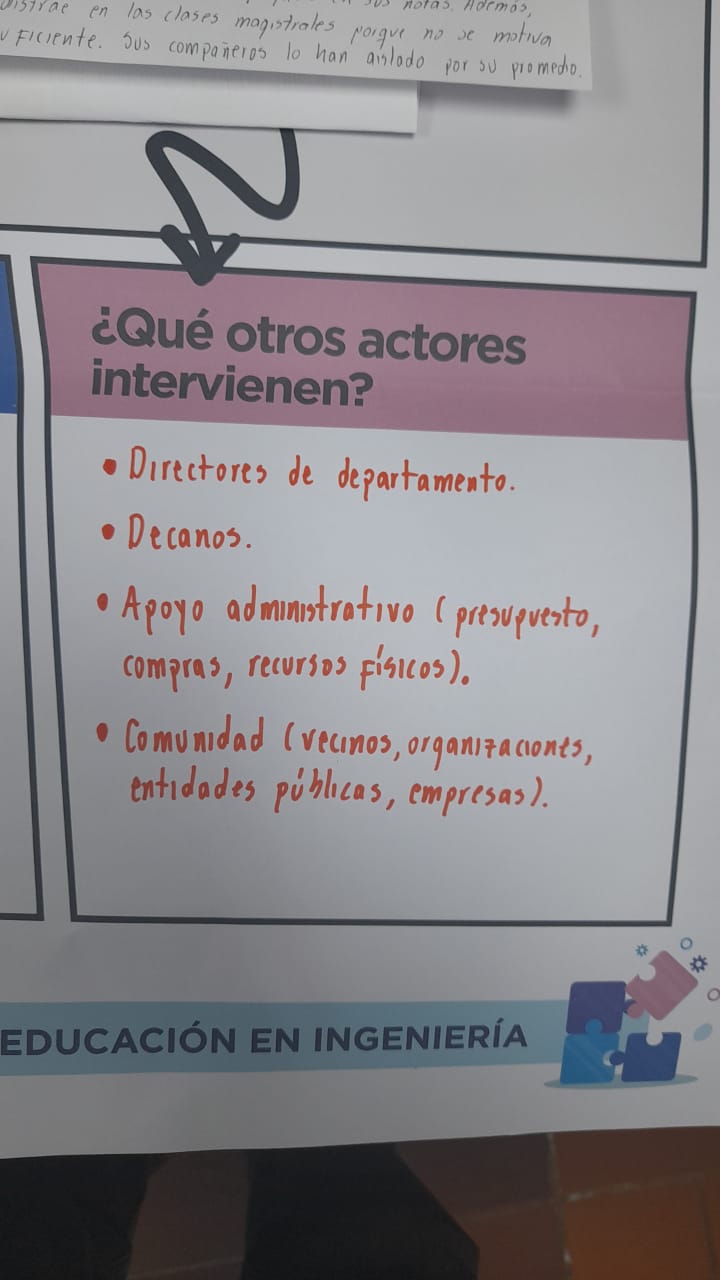 en las clases magistrales porque no se motiva
Sus compañeros lo han aislado por su promedio.
¿Qué otros actores
intervienen?
• Directores de departamento.
• Decanos.
• Apoyo administrativo (presupuesto,
compras, recursos físicos).
• Comunidad (vecinos, organizaciones,
entidades públicas, empresas).
EDUCACIÓN EN INGENIERÍA